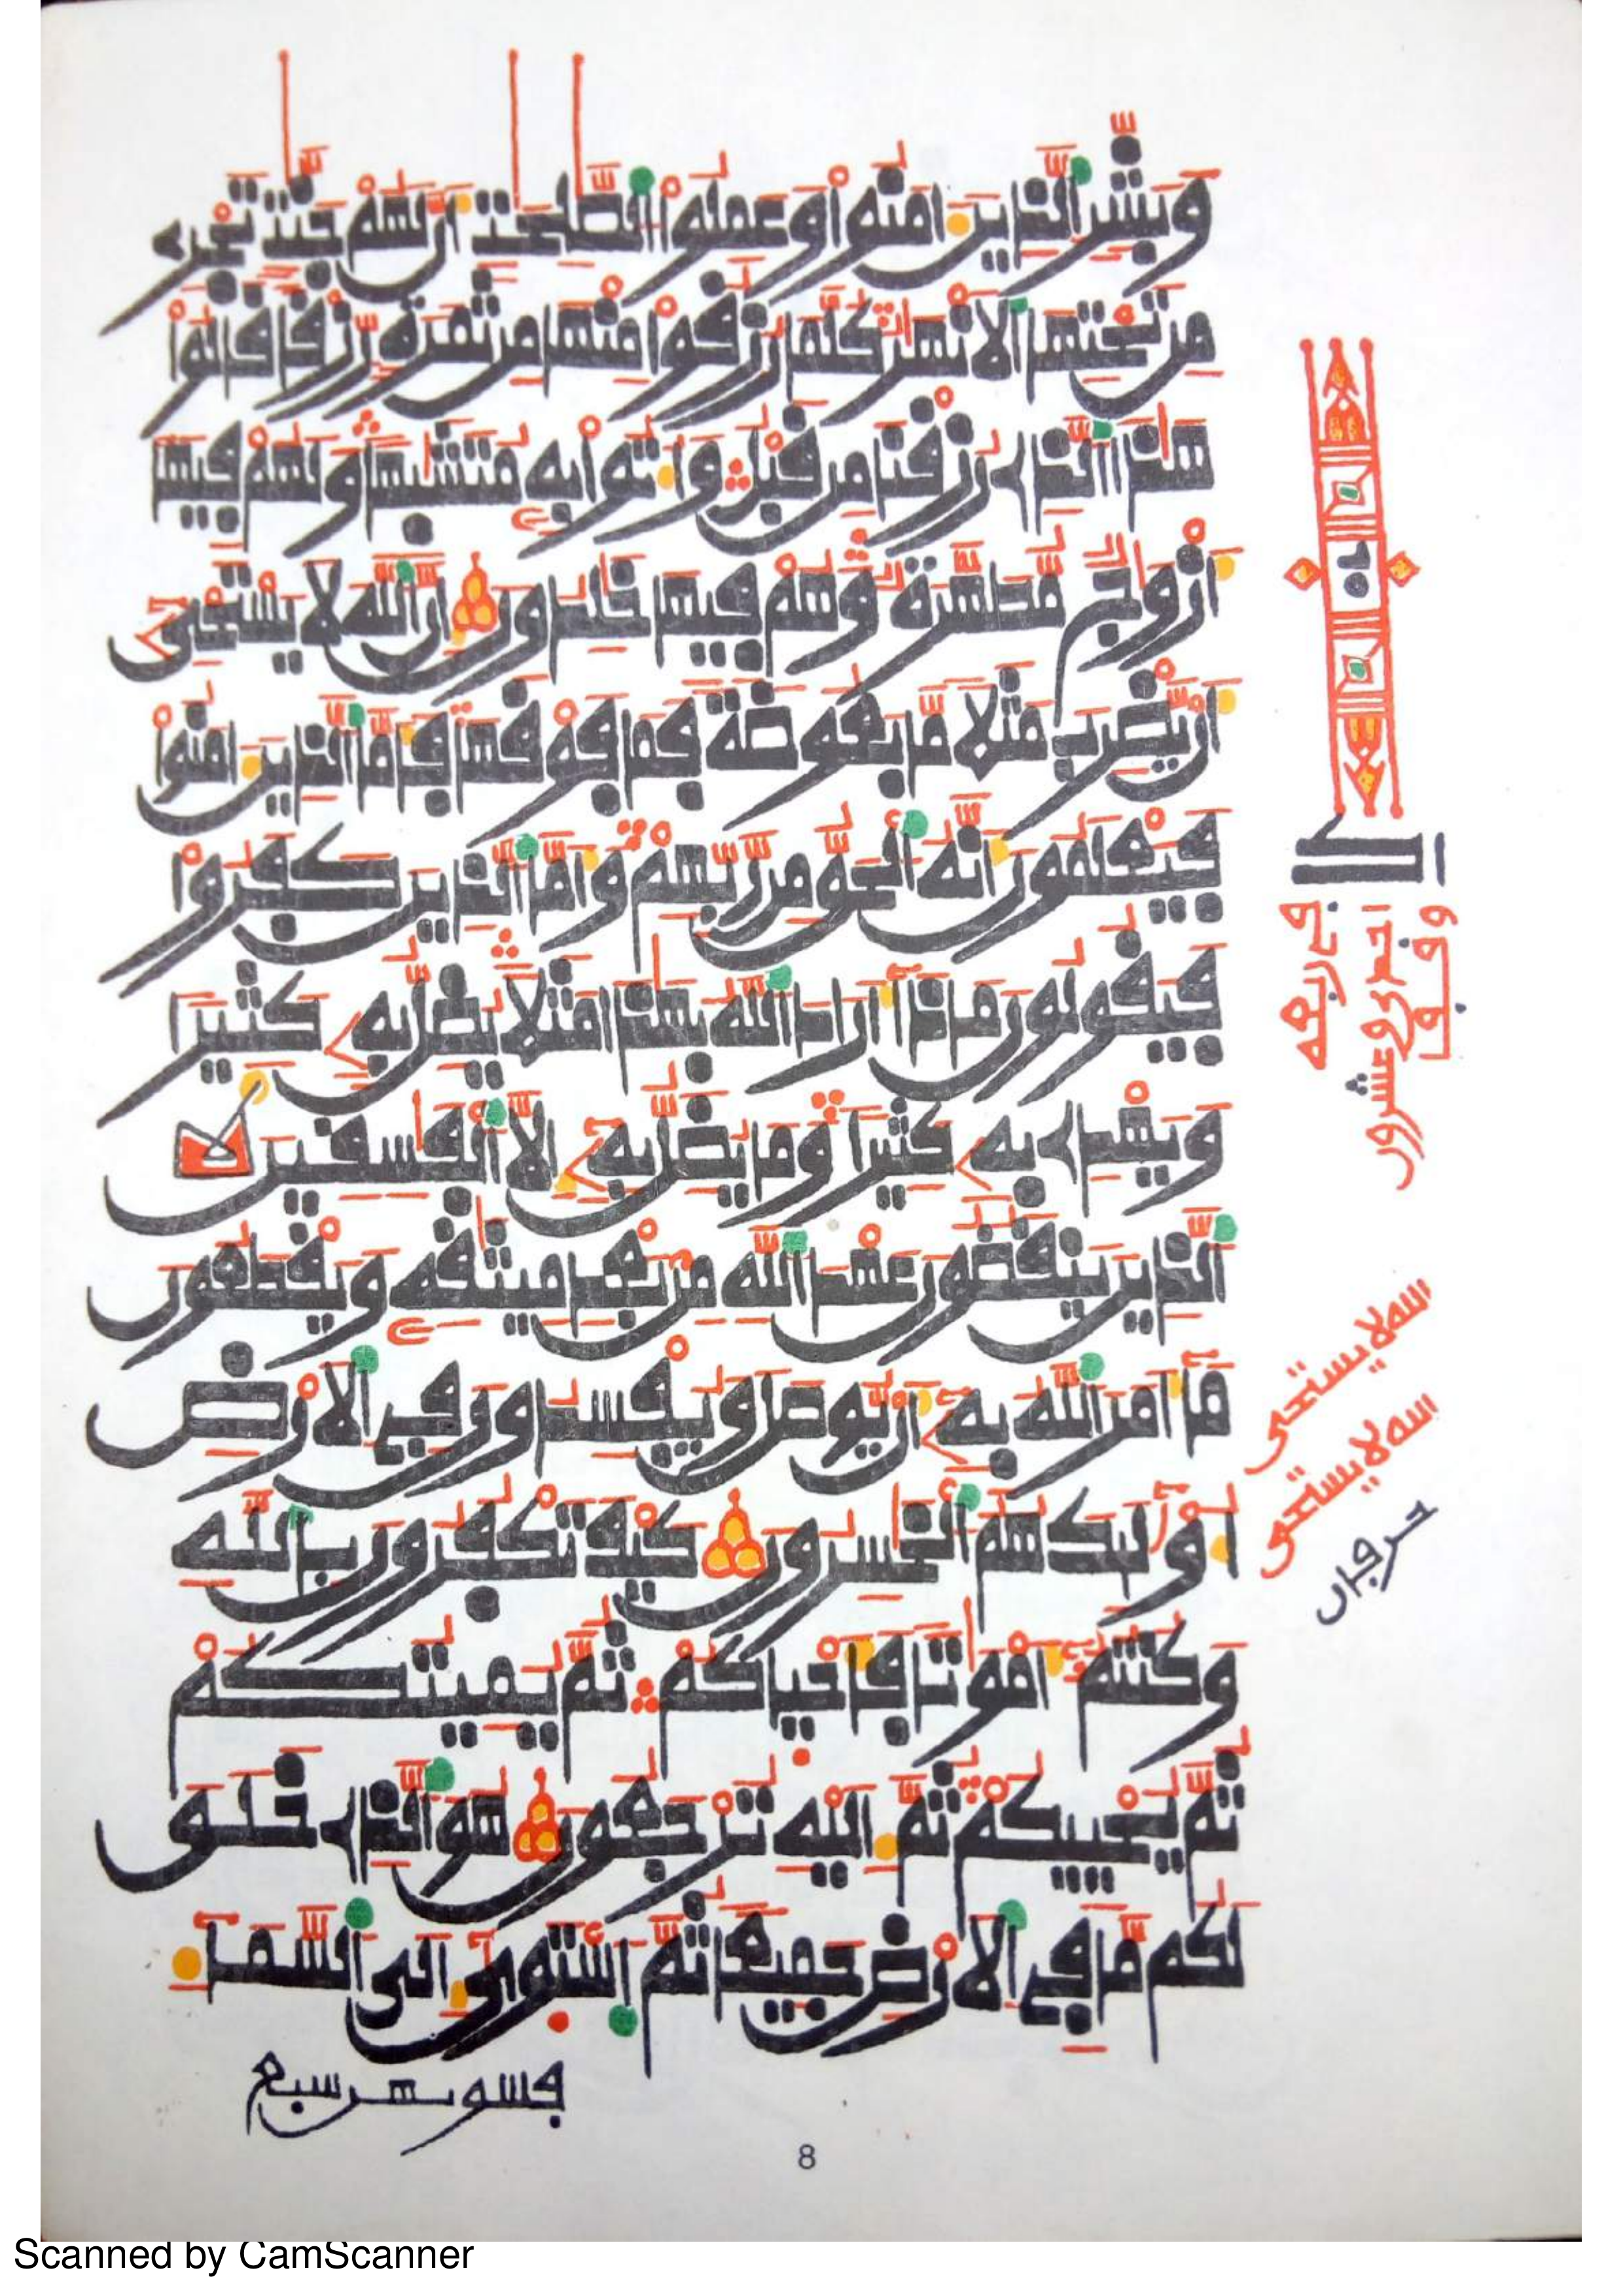 وَبَشِّرِ الذِينَ ءَامَنُوا وَعَمِلُوا الصَّٰلِحَٰتِ أَنَّ لَهُمْ جَنَّٰتٍ تَجْرِے
مِن تَحْتِهَا الَانْهَٰرُ كُلَّمَا رُزِقُوا مِنْهَا مِن ثَمَرَةٍ رِّزْقاً قَالُوا
هَٰذَا الذِے رُزِقْنَا مِن قَبْلُ وَأُتُوا بِهِ مُتَشَٰبِهاً وَلَهُمْ فِيهَا
أَزْوَٰجٌ مُّطَهَّرَةٌ وَهُمْ فِيهَا خَٰلِدُونَ إِنَّ اللَّهَ لَا يَسْتَحْيِۦ
أَنْ يَّضْرِبَ مَثَلًا مَّا بَعُوضَةً فَمَا فَوْقَهَا فَأَمَّا الذِينَ ءَامَنُوا
فَيَعْلَمُونَ أَنَّهُ الْحَقُّ مِن رَّبِّهِمْ وَأَمَّا الذِينَ كَفَرُوا
فَيَقُولُونَ مَاذَا أَرَادَ اللَّهُ بِهَٰذَا مَثَلًا يُضِلُّ بِهِ كَثِيراً
وَيَهْدِے بِهِ كَثِيراً وَمَا يُضِلُّ بِهِ إِلَّا الْفَٰسِقِينَ
الذِينَ يَنقُضُونَ عَهْدَ اللَّهِ مِن بَعْدِ مِيثَٰقِهِ وَيَقْطَعُونَ
مَا أَمَرَ اللَّهُ بِهِ أَنْ يُّوصَلَ وَيُفْسِدُونَ فِي الَارْضِ
أُوْلَٰئِكَ هُمُ الْخَٰسِرُونَ كَيْفَ تَكْفُرُونَ بِاللَّهِ
وَكُنتُمْ أَمْوَٰتاً فَأَحْيَاكُمْ ثُمَّ يُمِيتُكُمْ
ثُمَّ يُحْيِيكُمْ ثُمَّ إِلَيْهِ تُرْجَعُونَ هُوَ الذِے خَلَقَ
لَكُم مَّا فِي الَارْضِ جَمِيعاً ثُمَّ اسْتَوَىٰ إِلَى السَّمَاءِ
فسويهن سبع
احدى وعشرون
الله لا يستحى
الله لا يستحى
حرفان
8
Scanned by CamScanner